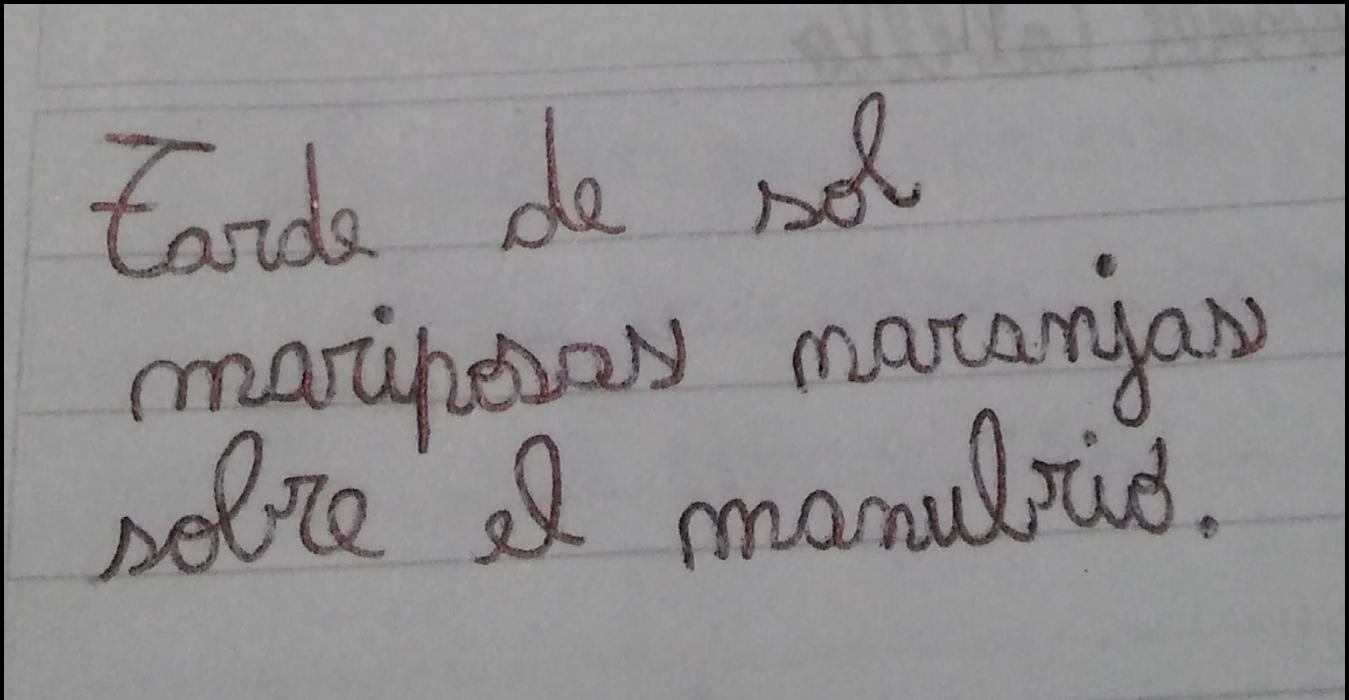 Tarde de sol
mariposas naranjas
sobre el manubrio.